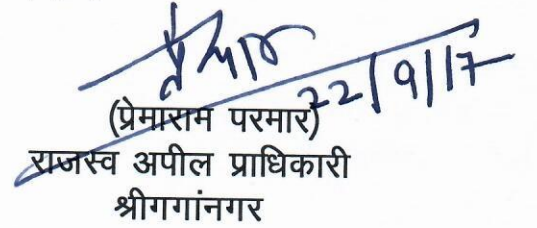 22/9/17
(प्रेमाराम परमार)
राजस्व अपील प्राधिकारी
श्रीगगांनगर